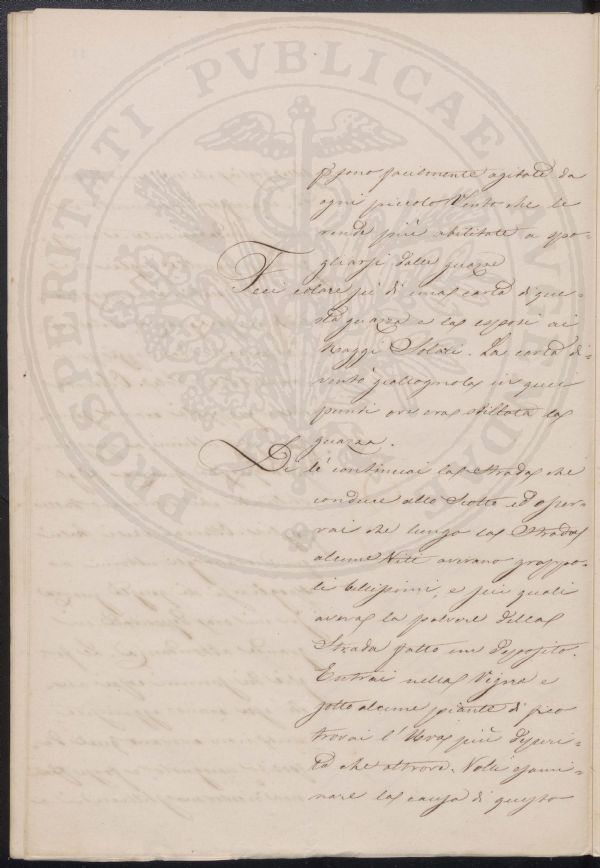 PROSPERITATI PVBLICAE AVGENDAE
p sono facilmente agitate da
ogni piccolo Vento che le
rende più abilitate a spo-
gliarsi dalle guazze
Feci colare sù di una carta di que-
sta guazza e la esposi ai
Raggi Solari. La carta di-
ventò giallognola in quei
punti ove era stillata la
guazza.
Di lé continuai la Strada che
conduce allo Scotto ed osser-
vai che lungo la Strada
alcune Viti avevano grappo-
li bellissimi, e sui quali
aveva la polvere della
Strada fatto un deposito.
Entrai nella Vigna e
sotto alcune piante di fico
trovai l'Uva più deperi-
ta che altrove. Volli esami-
nare la causa di questo